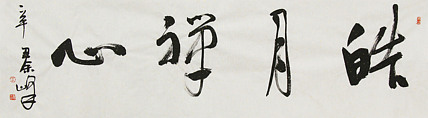 皓月禅心
辛丑秦峰